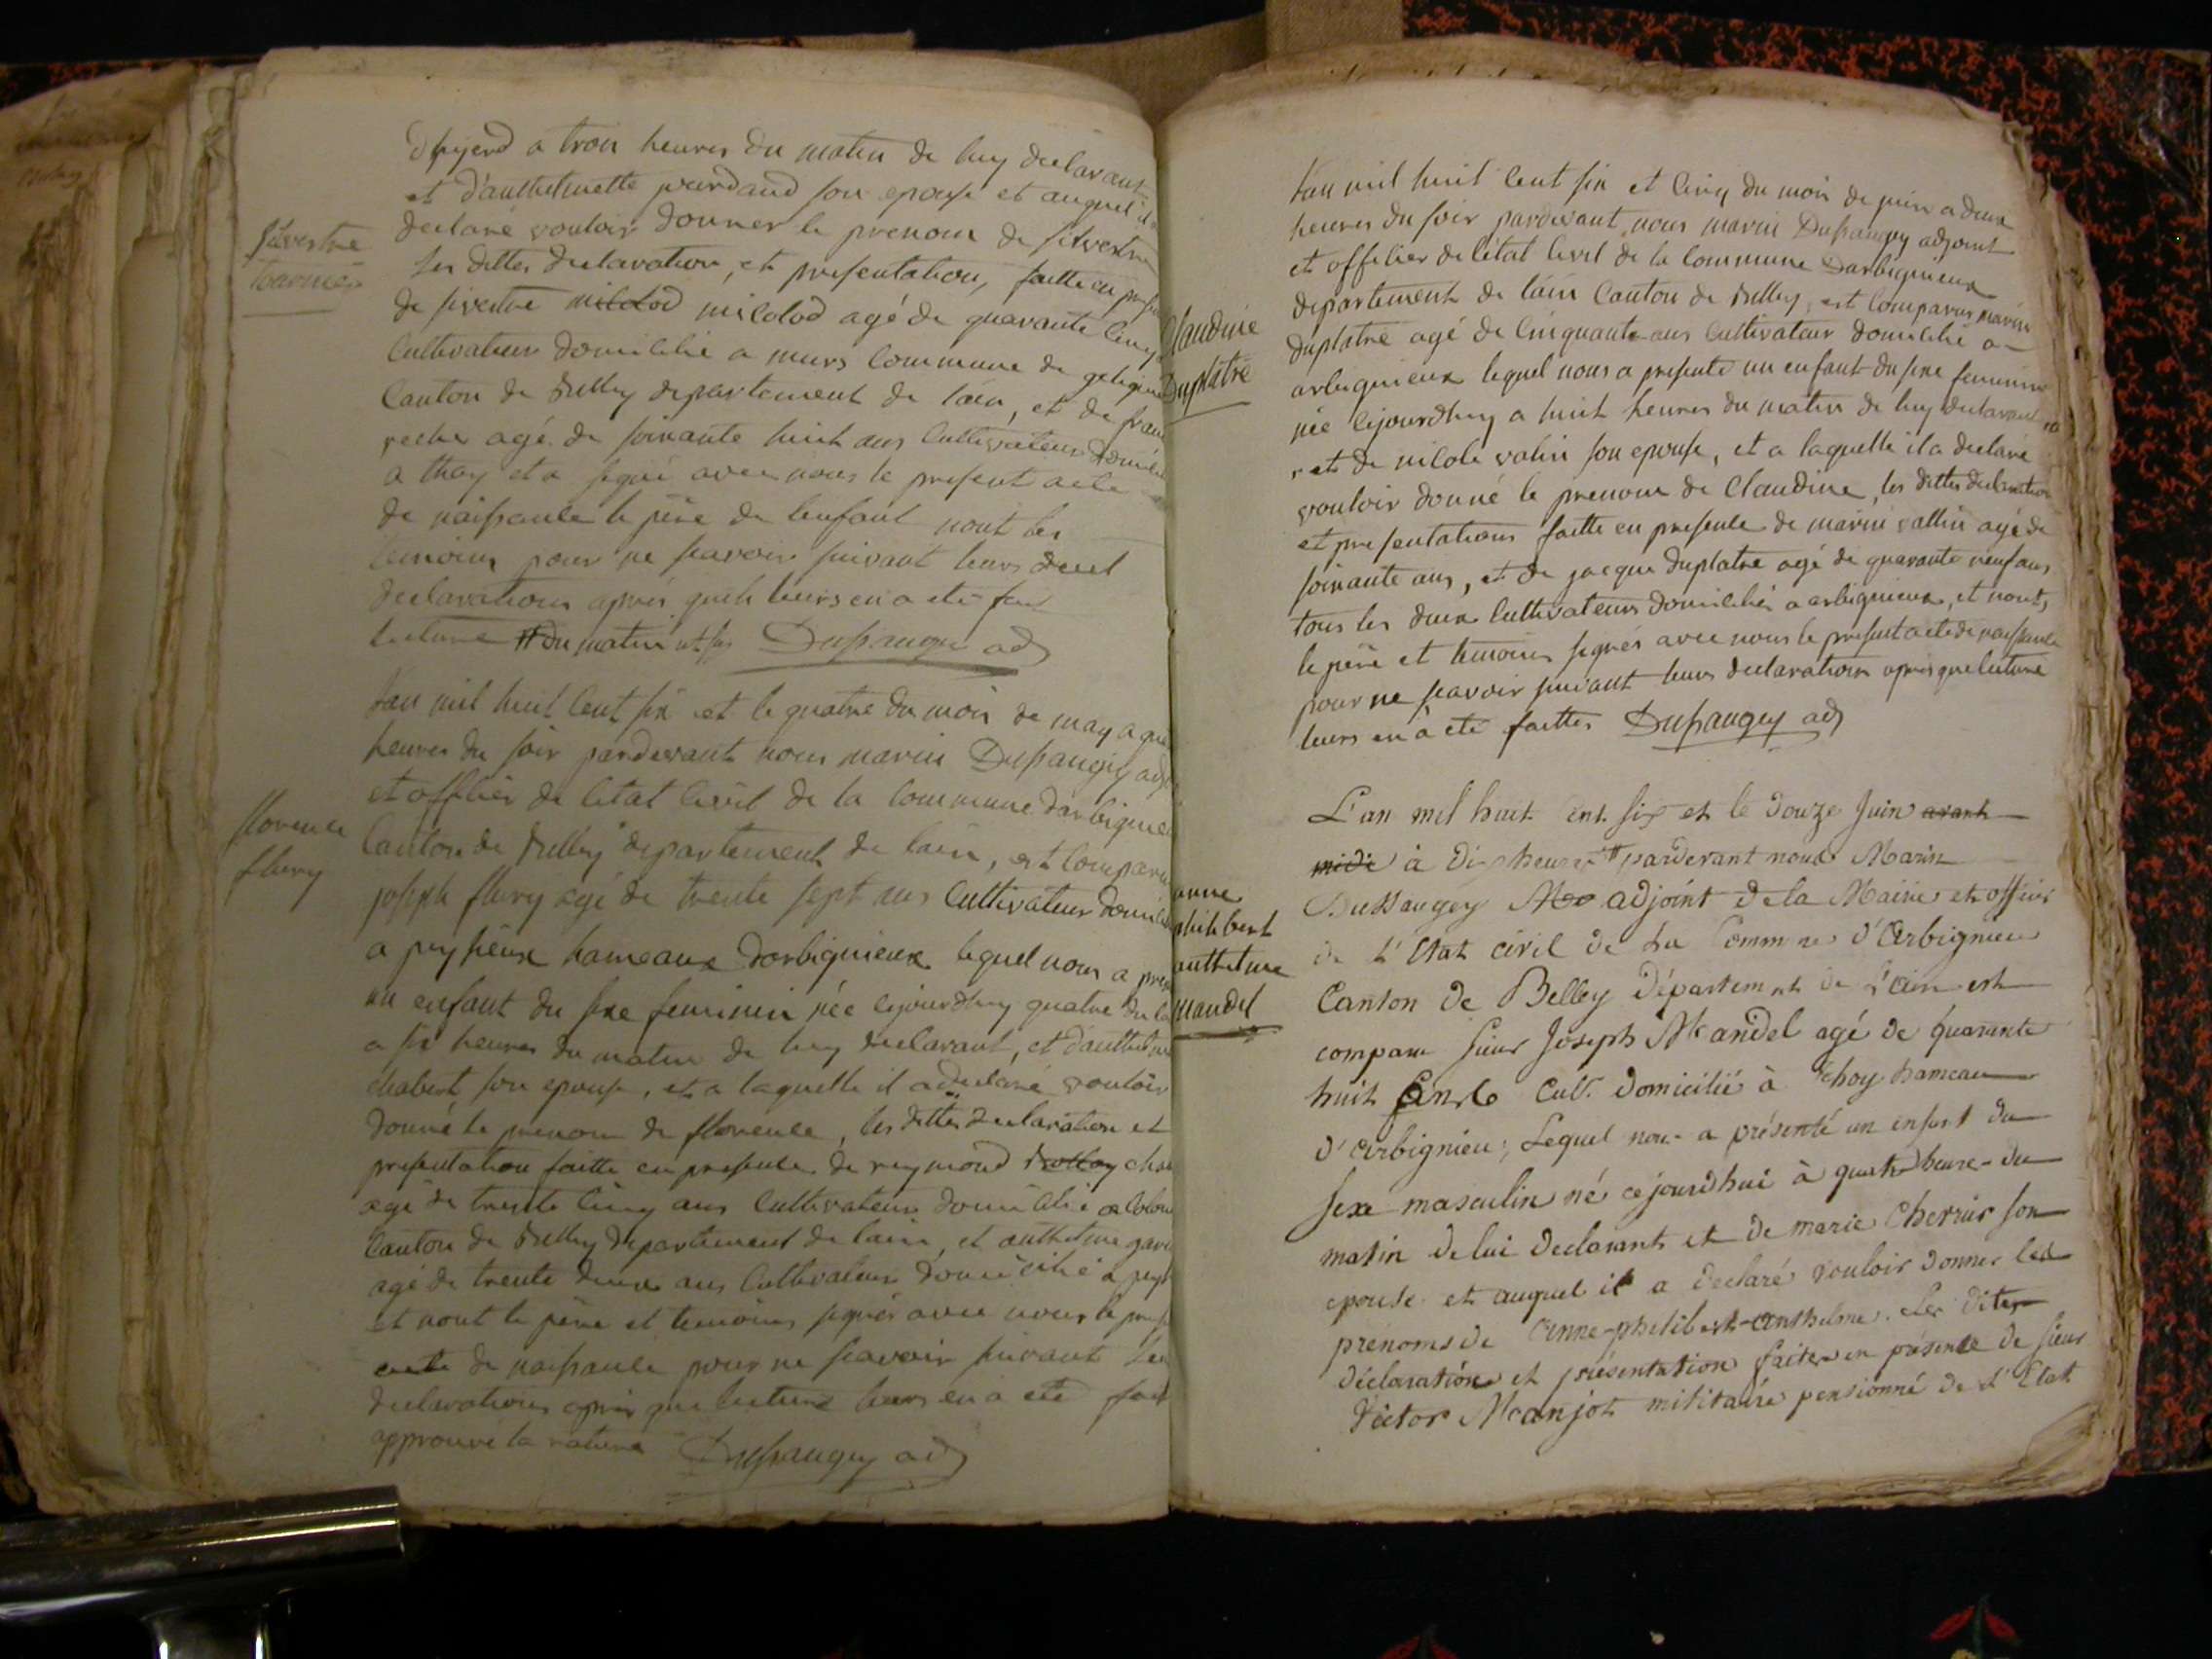 a trois heures du matin de luy declarant
et d'authelmette son epouse et auquel il
declaré vouloir donner le prenom de silvestre
les dittes declaration, et presentation, faitte en
de sivestre milolod milolod agé de quarante cinq
cultivateur domicilié a murs commune de
canton de Belley departement de lain, et de
agé de soixante huit ans cultivateur
a thoy et a signé avec nous le present acte
de naissance le père de lenfant nont les
temoins pour ne scavoir suivant leurs
declarations après queh leurs en a eté
lecture # du matin Dussaugey adj
silvestre
lan mil huit cent six et le quatre du mois de may a
heures du soir pardevant nous marin Dussaugey adj
et officier de létat civil de la commune darbignieu
canton de Belley departement de lain, est comparu
joseph flury agé de trente sept ans cultivateur
a peyzieux hameaux darbignieux lequel nous a
un enfant du sexe feminin née cejourdhuy quatre du
a six heures du matin de luy declarant, et dauthelme
chabert son epouse, et a laquelle il a declaré vouloir
donné le prenom de florence, les dittes declaration et
presentation faitte en presence de reymond
agé de trente cinq ans cultivateur domicilié a
canton de Belley departement de lain, et authelme
agé de trente deux ans cultivateur domicilié a
et nont le père et temoins signés avec nous le
acte de naissance pour ne scavoir suivant
declarations après que lecture leurs en a eté
approuvé la rature Dussaugey adj
florence
flury
lan mil huit cent six et cinq du mois de juin a deux
heures du soir pardevant nous marin Dussaugey adjoint
et officier de létat civil de la commune Darbignieux
departement de lain canton de Belley, est comparus marin
duplatre agé de cinquante ans cultivateur domicilié a
arbignieux lequel nous a presenté un enfant du sexe feminin
née cejourdhuy a huit heures du matin de luy declarant
et de nicole valin son epouse, et a laquelle il a declaré
vouloir donné le prenom de Claudine, les dittes declaration
et presentations faitte en presence de marin vallin agé de
soixante ans, et de jacque duplatre agé de quarante neuf ans
tous les deux cultivateurs domicilié a arbignieux, et nont,
le père et temoins signés avec nous le present acte de naissance
pour ne scavoir suivant leurs declarations après que lecture
leurs en a eté faittes Dussaugey adj
Claudine
Duplatre
L'an mil huit cent six et le douze Juin avant
midi à dix heures # pardevant nous Marin
Dussaugey adjoint de la Mairie et officier
de l'Etat civil de la Commune d'Arbignieu
Canton de Belley Département de l'ain est
comparu sieur Joseph Mandel agé de quarante
huit cult. domicilié à thoy hameau
d'arbignieu; Lequel nous a présenté un enfant du
sexe masculin né cejourdhui à quatre heures du
matin de lui declarant et de marie Cherrier son
epouse et auquel il a declaré vouloir donner les
prenoms de anne-philibert-anthelme. Les dites
déclaration et présentation faites en présence de sieur
Victor Manjot militaire pensionné de l'Etat
anne
philibert
authelme
mandel